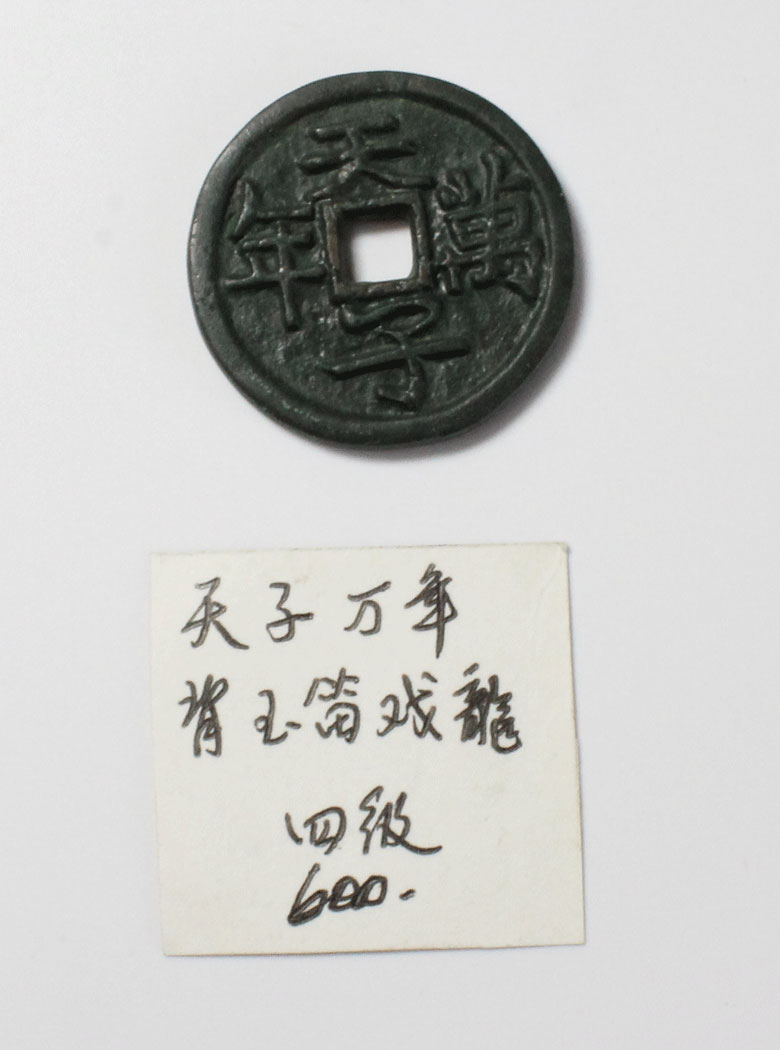 天子萬年
天子万年
背玉笛戏龍
四级
600.